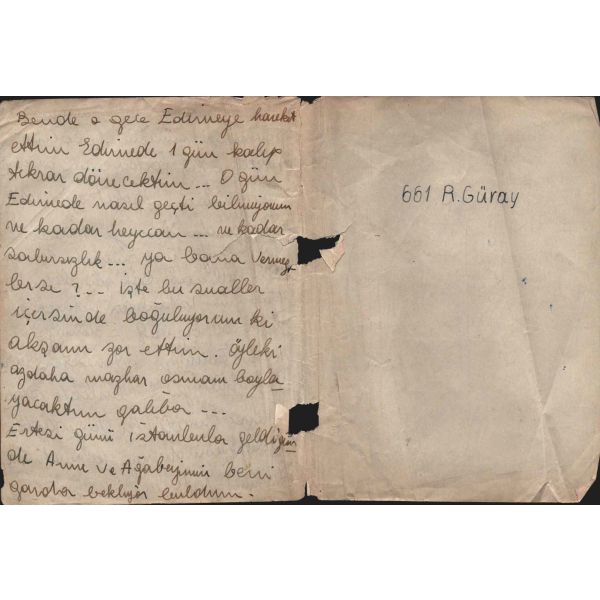 Bende o gece Edirneye hareket
ettim Edirnede 1 gün kalıp
tekrar dönecektim... O gün
Edirnede nasıl geçti bilmiyorum
ne kadar heyecan... ne kadar
sabırsızlık... ya bana vermez
lerse ?... işte bu sualler
içersinde boğuluyorum ki
akşamı zor ettim. öyleki
azdaha mazhar osmanı boyla
yacaktım galiba ...
Ertesi günü istanbula geldiğim
de Anne ve Ağabeyimin beni
garda bekliyor buldum.
661 R.Güray